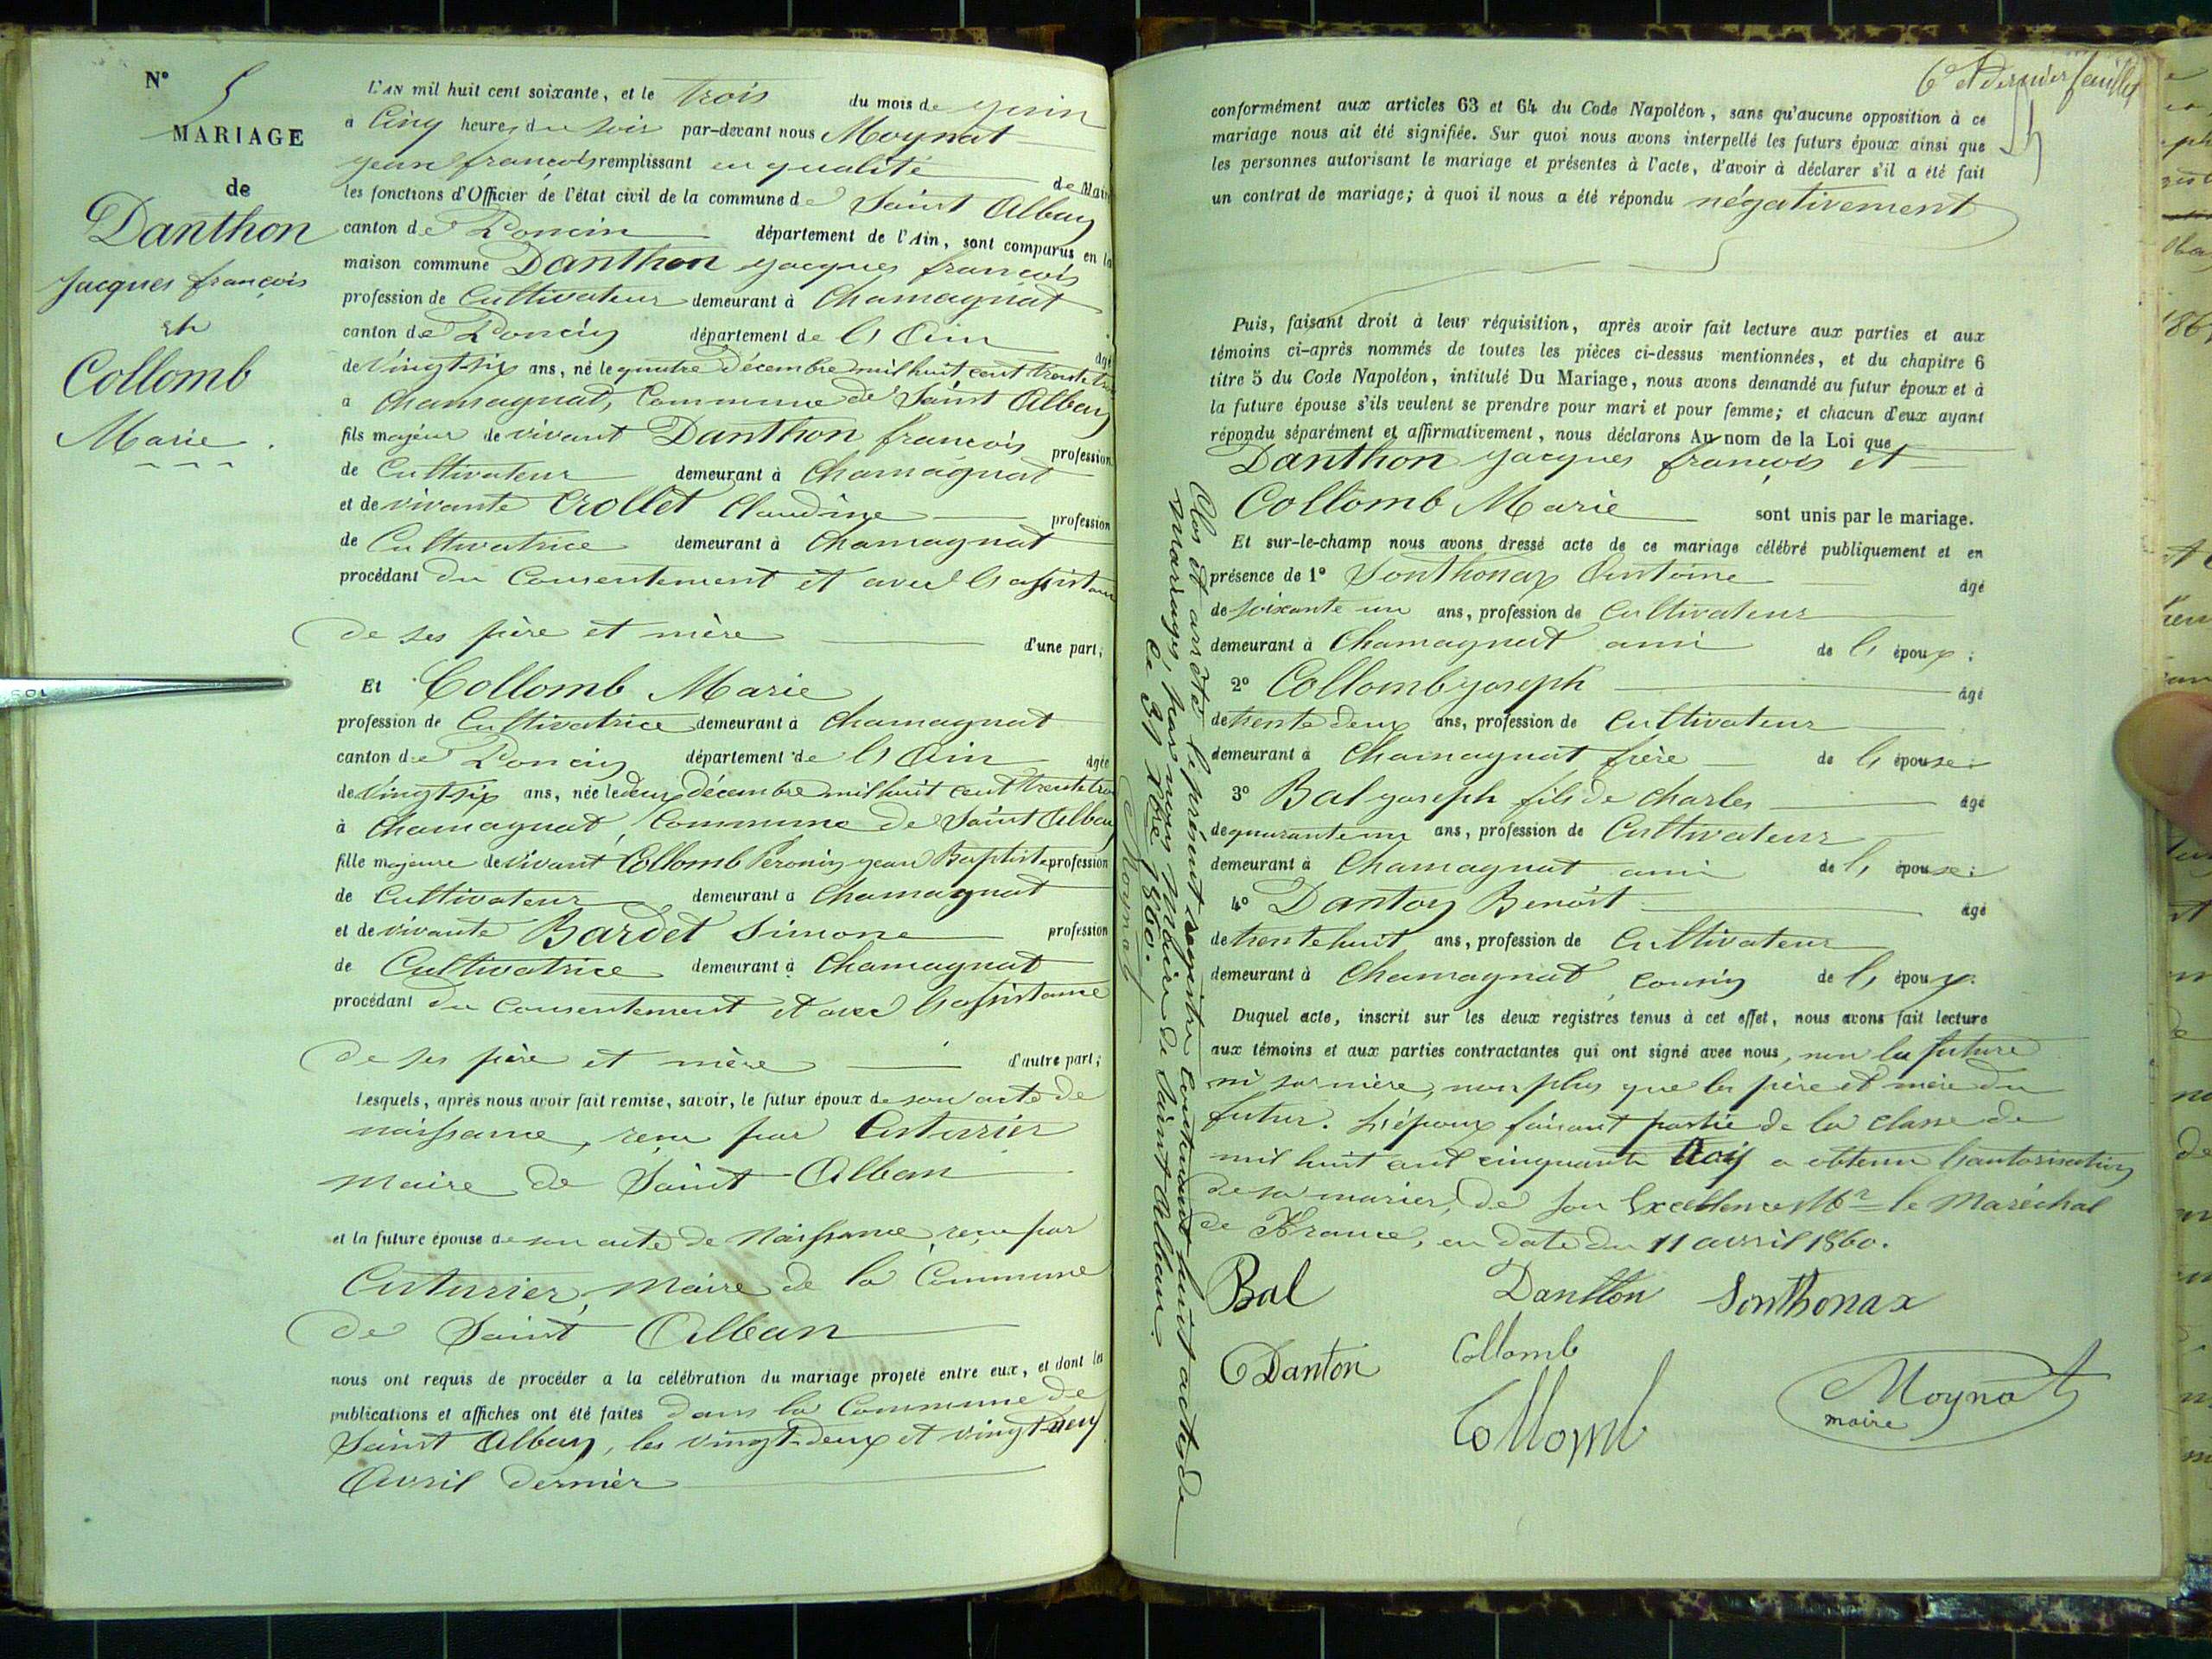 N° 5
MARIAGE
de
Danthon
Jacques françois
et
Collomb
Marie.
L'AN mil huit cent soixante, et le trois du mois de juin
à Cinq heures du soir par-devant nous Moynat
jean françois remplissant en qualité de Maire
les fonctions d'Officier de l'état civil de la commune de Saint Alban
canton de Poncin département de l'Ain, sont comparus en la
maison commune Danthon jacques françois
profession de Cultivateur demeurant à Chamagnat
canton de Poncin département de l'Ain âgé
de Vingt-six ans, né le quatre Décembre mil huit cent trente trois
à Chamagnat, Commune de Saint Alban
fils majeur de vivant Danthon françois profession
de Cultivateur demeurant à Chamagnat
et de vivante Crollet Claudine profession
de Cultivatrice demeurant à Chamagnat
procédant du Consentement et avec l'assistance
de ses père et mère d'une part;
Et Collomb Marie
profession de Cultivatrice demeurant à Chamagnat
canton de Poncin département de l'Ain âgée
de Vingt-six ans, née le deux décembre mil huit cent trente trois
à Chamagnat, Commune de Saint Alban
fille majeure de vivant Collomb Peronin jean Baptiste profession
de Cultivateur demeurant à Chamagnat
et de vivante Bardet Simone profession
de Cultivatrice demeurant à Chamagnat
procédant du Consentement et avec l'assistance
de ses père et mère d'autre part;
Lesquels, après nous avoir fait remise, savoir, le futur époux de son acte de
naissance, reçu par Cuturier
Maire de Saint Alban
et la future épouse de son acte de Naissance reçu par
Cuturier, Maire de la Commune
de Saint Alban
nous ont requis de procéder à la célébration du mariage projeté entre eux, et dont les
publications et affiches ont été faites dans la Commune de
Saint Alban, les vingt-deux et vingt-neuf
Avril dernier
6e et dernier feuillet
conformément aux articles 63 et 64 du Code Napoléon, sans qu'aucune opposition à ce
mariage nous ait été signifiée. Sur quoi nous avons interpellé les futurs époux ainsi que
les personnes autorisant le mariage et présentes à l'acte, d'avoir à déclarer s'il a été fait
un contrat de mariage; à quoi il nous a été répondu négativement
Puis, faisant droit à leur réquisition, après avoir fait lecture aux parties et aux
témoins ci-après nommés de toutes les pièces ci-dessus mentionnées, et du chapitre 6
titre 5 du Code Napoléon, intitulé Du Mariage, nous avons demandé au futur époux et à
la future épouse s'ils veulent se prendre pour mari et pour femme; et chacun d'eux ayant
répondu séparément et affirmativement, nous déclarons Au nom de la Loi que
Danthon jacques françois et
Collomb Marie sont unis par le mariage.
Et sur-le-champ nous avons dressé acte de ce mariage célébré publiquement et en
présence de 1° Sonthonax Antoine âgé
de soixante un ans, profession de Cultivateur
demeurant à Chamagnat ami de l'époux;
2° Collomb joseph âgé
de trente deux ans, profession de Cultivateur
demeurant à Chamagnat frère de l'épouse;
3° Bal joseph fils de Charles âgé
de quarante un ans, profession de Cultivateur
demeurant à Chamagnat ami de l'épouse;
4° Danton Benoît âgé
de trente huit ans, profession de Cultivateur
demeurant à Chamagnat, cousin de l'époux.
Duquel acte, inscrit sur les deux registres tenus à cet effet, nous avons fait lecture
aux témoins et aux parties contractantes qui ont signé avec nous, non la future
ni sa mère, non plus que les père et mère du
futur. L'époux faisant partie de la classe de
mil huit cent cinquante trois a obtenu l'autorisation
de se marier, de son Excellence Mr le Maréchal
de France, en date du 11 avril 1860.
Bal Danthon Sonthonax
Danton Collomb
Collomb
Moynat
maire
Clos et arrêté le présent registre contenant huit actes de
mariages, par nous Maire de Saint Alban.
Ce 31 Xbre 1860.
Moynat